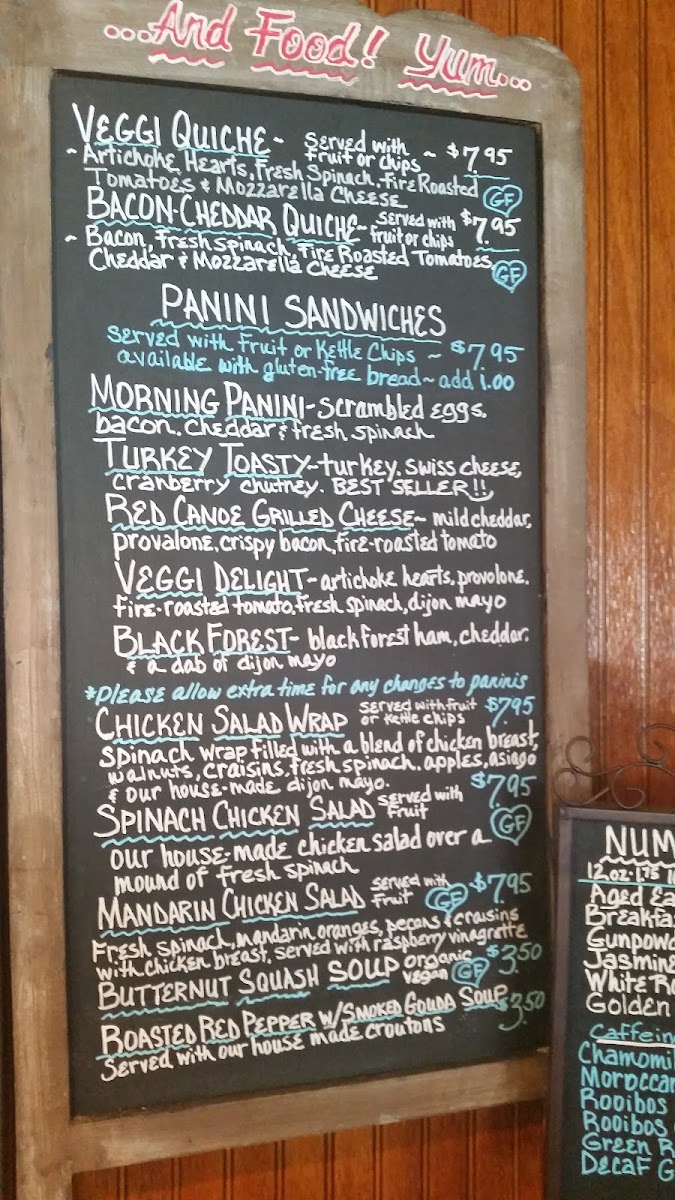 ...And Food! Yum...
VEGGI QUICHE~ Served with fruit or chips ~ $7.95
~ Artichoke Hearts, Fresh Spinach, Fire Roasted
Tomatoes & Mozzarella Cheese GF
BACON-CHEDDAR QUICHE~ Served with fruit or chips $7.95
~ Bacon, Fresh Spinach, Fire Roasted Tomatoes,
Cheddar & Mozzarella Cheese GF
PANINI SANDWICHES
Served with Fruit or Kettle Chips ~ $7.95
available with gluten-free bread~ add 1.00
MORNING PANINI-Scrambled eggs,
bacon, cheddar & fresh spinach
TURKEY TOASTY~turkey, swiss cheese,
cranberry chutney. BEST SELLER!!
RED CANOE GRILLED CHEESE~ mild cheddar,
provalone, crispy bacon, fire-roasted tomato
VEGGI DELIGHT-artichoke hearts, provolone,
fire-roasted tomato, fresh spinach, dijon mayo
BLACK FOREST- black forest ham, cheddar,
& a dab of dijon mayo
*Please allow extra time for any changes to paninis
CHICKEN SALAD WRAP served with fruit or kettle chips $7.95
spinach wrap filled with a blend of chicken breast,
walnuts, craisins, fresh spinach, apples, asiago
& our house-made dijon mayo.
SPINACH CHICKEN SALAD served with fruit $7.95
our house-made chicken salad over a GF
mound of fresh spinach
MANDARIN CHICKEN SALAD served with fruit GF $7.95
Fresh spinach, mandarin oranges, pecans & craisins
with chicken breast, served with raspberry vinagrette
BUTTERNUT SQUASH SOUP organic vegan GF $3.50
ROASTED RED PEPPER W/SMOKED GOUDA SOUP $3.50
Served with our house made croutons
NUM
12 oz-1.75
Aged Ea
Breakfa
Gunpow
Jasmine
White R
Golden
Caffein
Chamomi
Moroccan
Rooibos
Rooibos
Green R
Decaf G